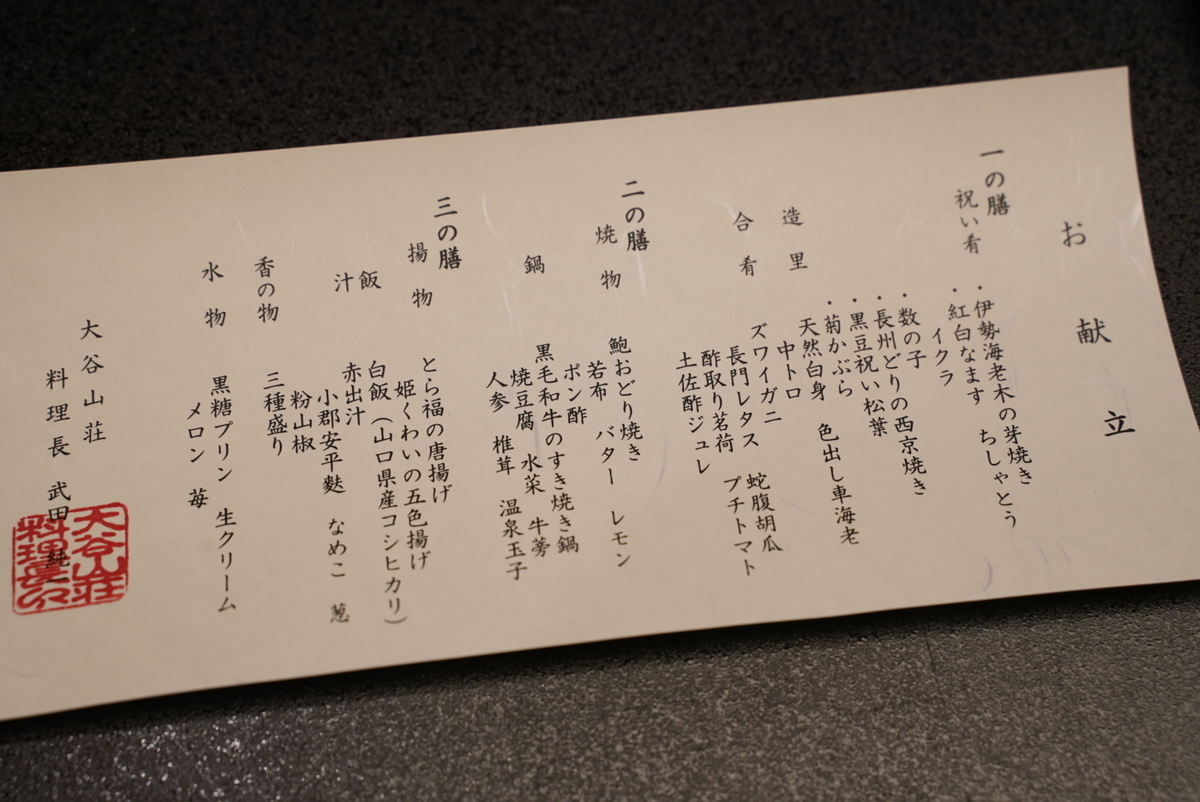 お献立
一の膳
祝い肴
・伊勢海老木の芽焼き
・紅白なます ちしゃとう
イクラ
・数の子
・長州どりの西京焼き
・黒豆祝い松葉
・菊かぶら
造里
天然白身 色出し車海老
中トロ
合肴
ズワイガニ 蛇腹胡瓜
長門レタス プチトマト
酢取り茗荷
土佐酢ジュレ
二の膳
焼物
鮑おどり焼き
若布 バター レモン
ポン酢
鍋
黒毛和牛のすき焼き鍋
焼豆腐 水菜 牛蒡
人参 椎茸 温泉玉子
三の膳
揚物
とら福の唐揚げ
姫くわいの五色揚げ
飯
白飯(山口県産コシヒカリ)
汁
赤出汁
小郡安平麩 なめこ 葱
粉山椒
香の物
三種盛り
水物
黒糖プリン 生クリーム
メロン 苺
大谷山荘
料理長 武田 純一
大谷山荘
料理長